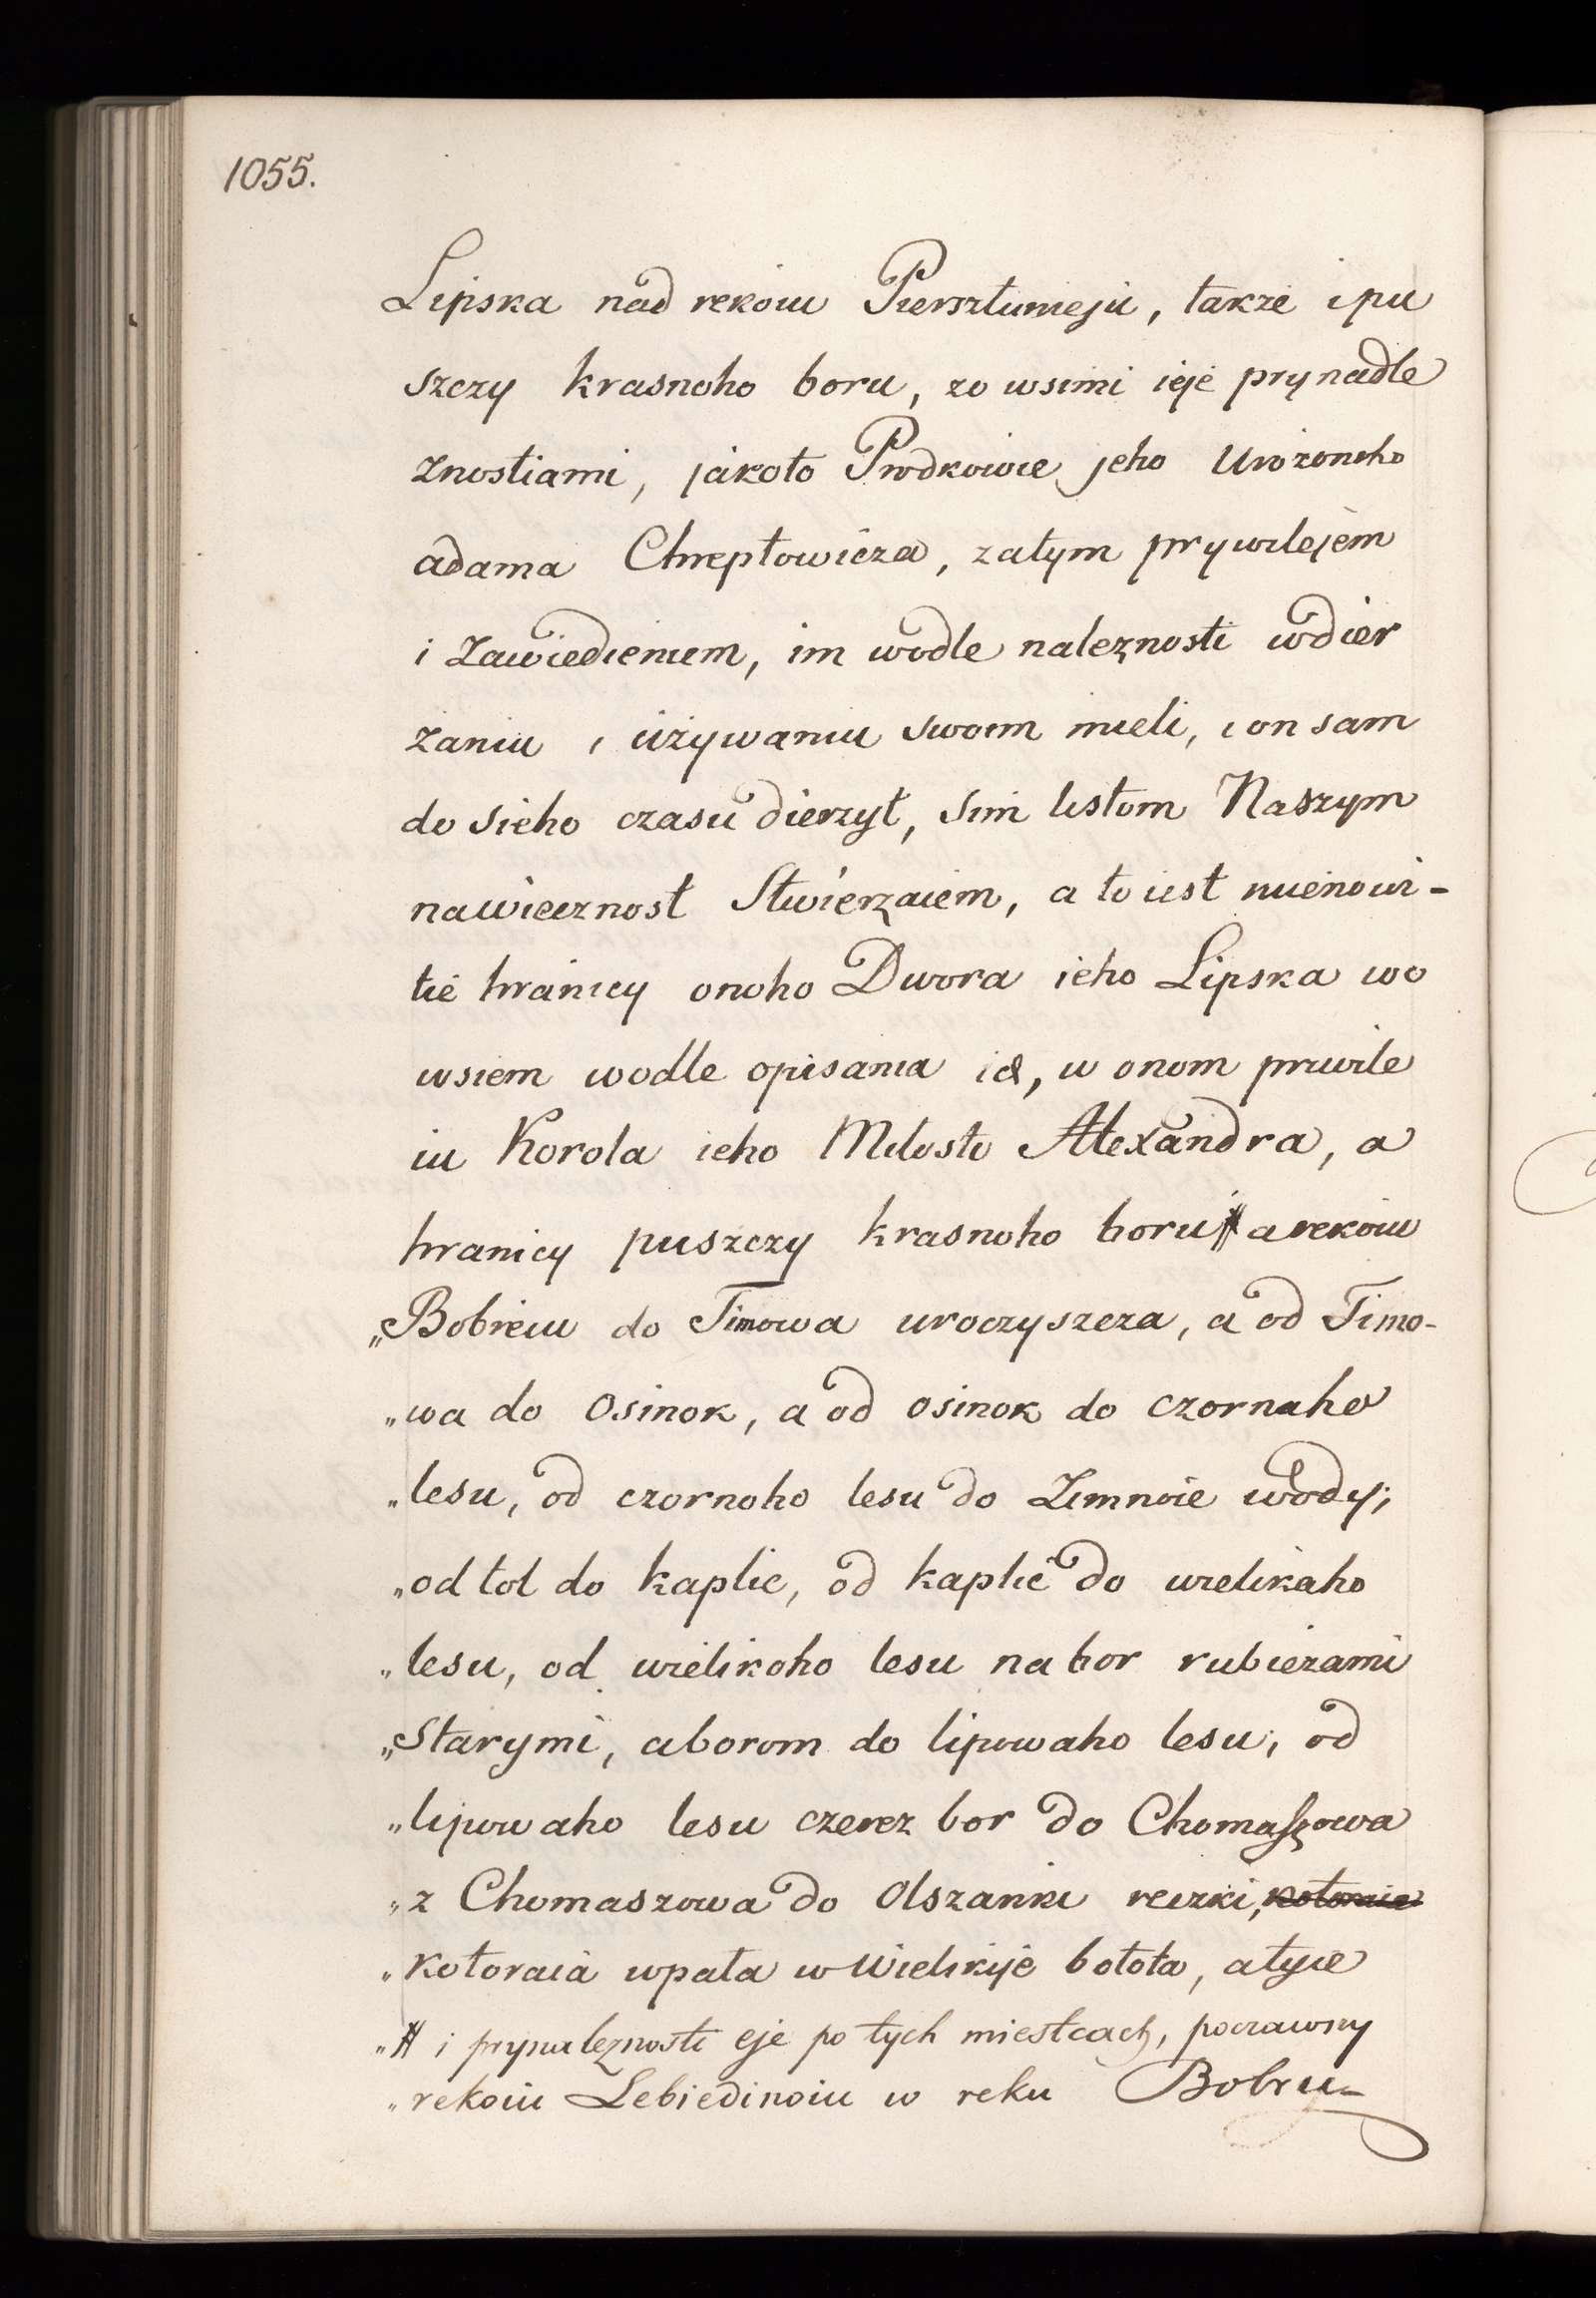 1055.
Lipska nad rekoiu Piersztunieju, takze i pu
szczy krasnoho boru, zo wsimi ieje prynadle
znostiami, jakoto Prodkowie jeho Urożonoho
adama Chreptowicza, zatym prywilejem
i Zawiedieniem, im wodle naleznosti wdier
żaniu i używaniu swoim mieli, i on sam
do sieho czasu dierzył, sim listom Naszym
nawiecznost Stwierzaiem, a to iest mienowi-
tie hranicy onoho Dwora ieho Lipska wo
wsiem wodle opisania ich, w onom prwile
iu Korola ieho Milosti Alexandra, a
hranicy puszczy krasnoho boru # a rekoiu
„Bobreiu do Timowa uroczyszcza, a od Timo-
„wa do Osinok, a od osinok do czornaho
„lesu, od czornoho lesu do Zimnoie wody;
„od tol do kaplic, od kaplic do wielikaho
„lesu, od wielikoho lesu na bor rubieżami
„Starymi, aborom do lipowaho lesu, od
„lipowaho lesu czerez bor do Chomaszowa
„z Chomaszowa do Olszanki reczki, kotoraia
„kotoraia wpała w Wielikije bołota, atyie
„# i prynaleznosti eje po tych miestcach, poczawny
„rekoiu Lebiedinoiu w reku Bobru-